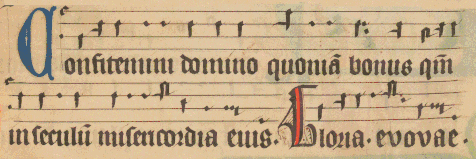 Confitemini domino quoniā bonus qm̄
in seculū misericordia eius. Gloria. evovae.